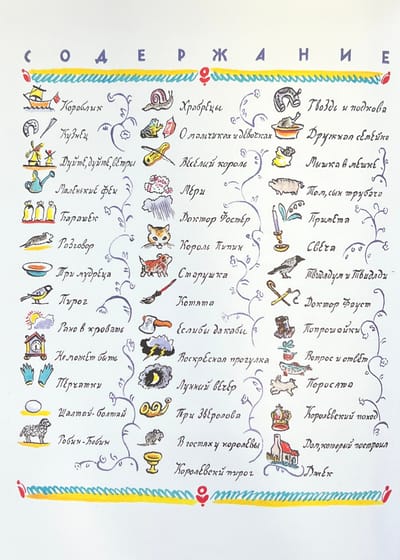 СОДЕРЖАНИЕ
Кораблик
Кузнец
Дуйте, дуйте, ветры
Маленькие феи
Барашек
Разговор
Три мудреца
Пирог
Рано в кровать
Не может быть
Перчатки
Шалтай-болтай
Робин-Бобин
Храбрецы
О мальчиках и девочках
Весёлый король
Мэри
Доктор Фостер
Король Пипин
Старушка
Котята
Если бы да кабы
Воскресная прогулка
Лунный вечер
Три Зверолова
В гостях у королевы
Королевский пирог
Гвоздь и подкова
Дружная семейка
Мышка в мешке
Том, сын трубача
Прилёта
Свеча
Твидадум и Твидади
Доктор Фауст
Попрошайки
Вопрос и ответ
Поросята
Королевский поход
Дом, который построил
Джек